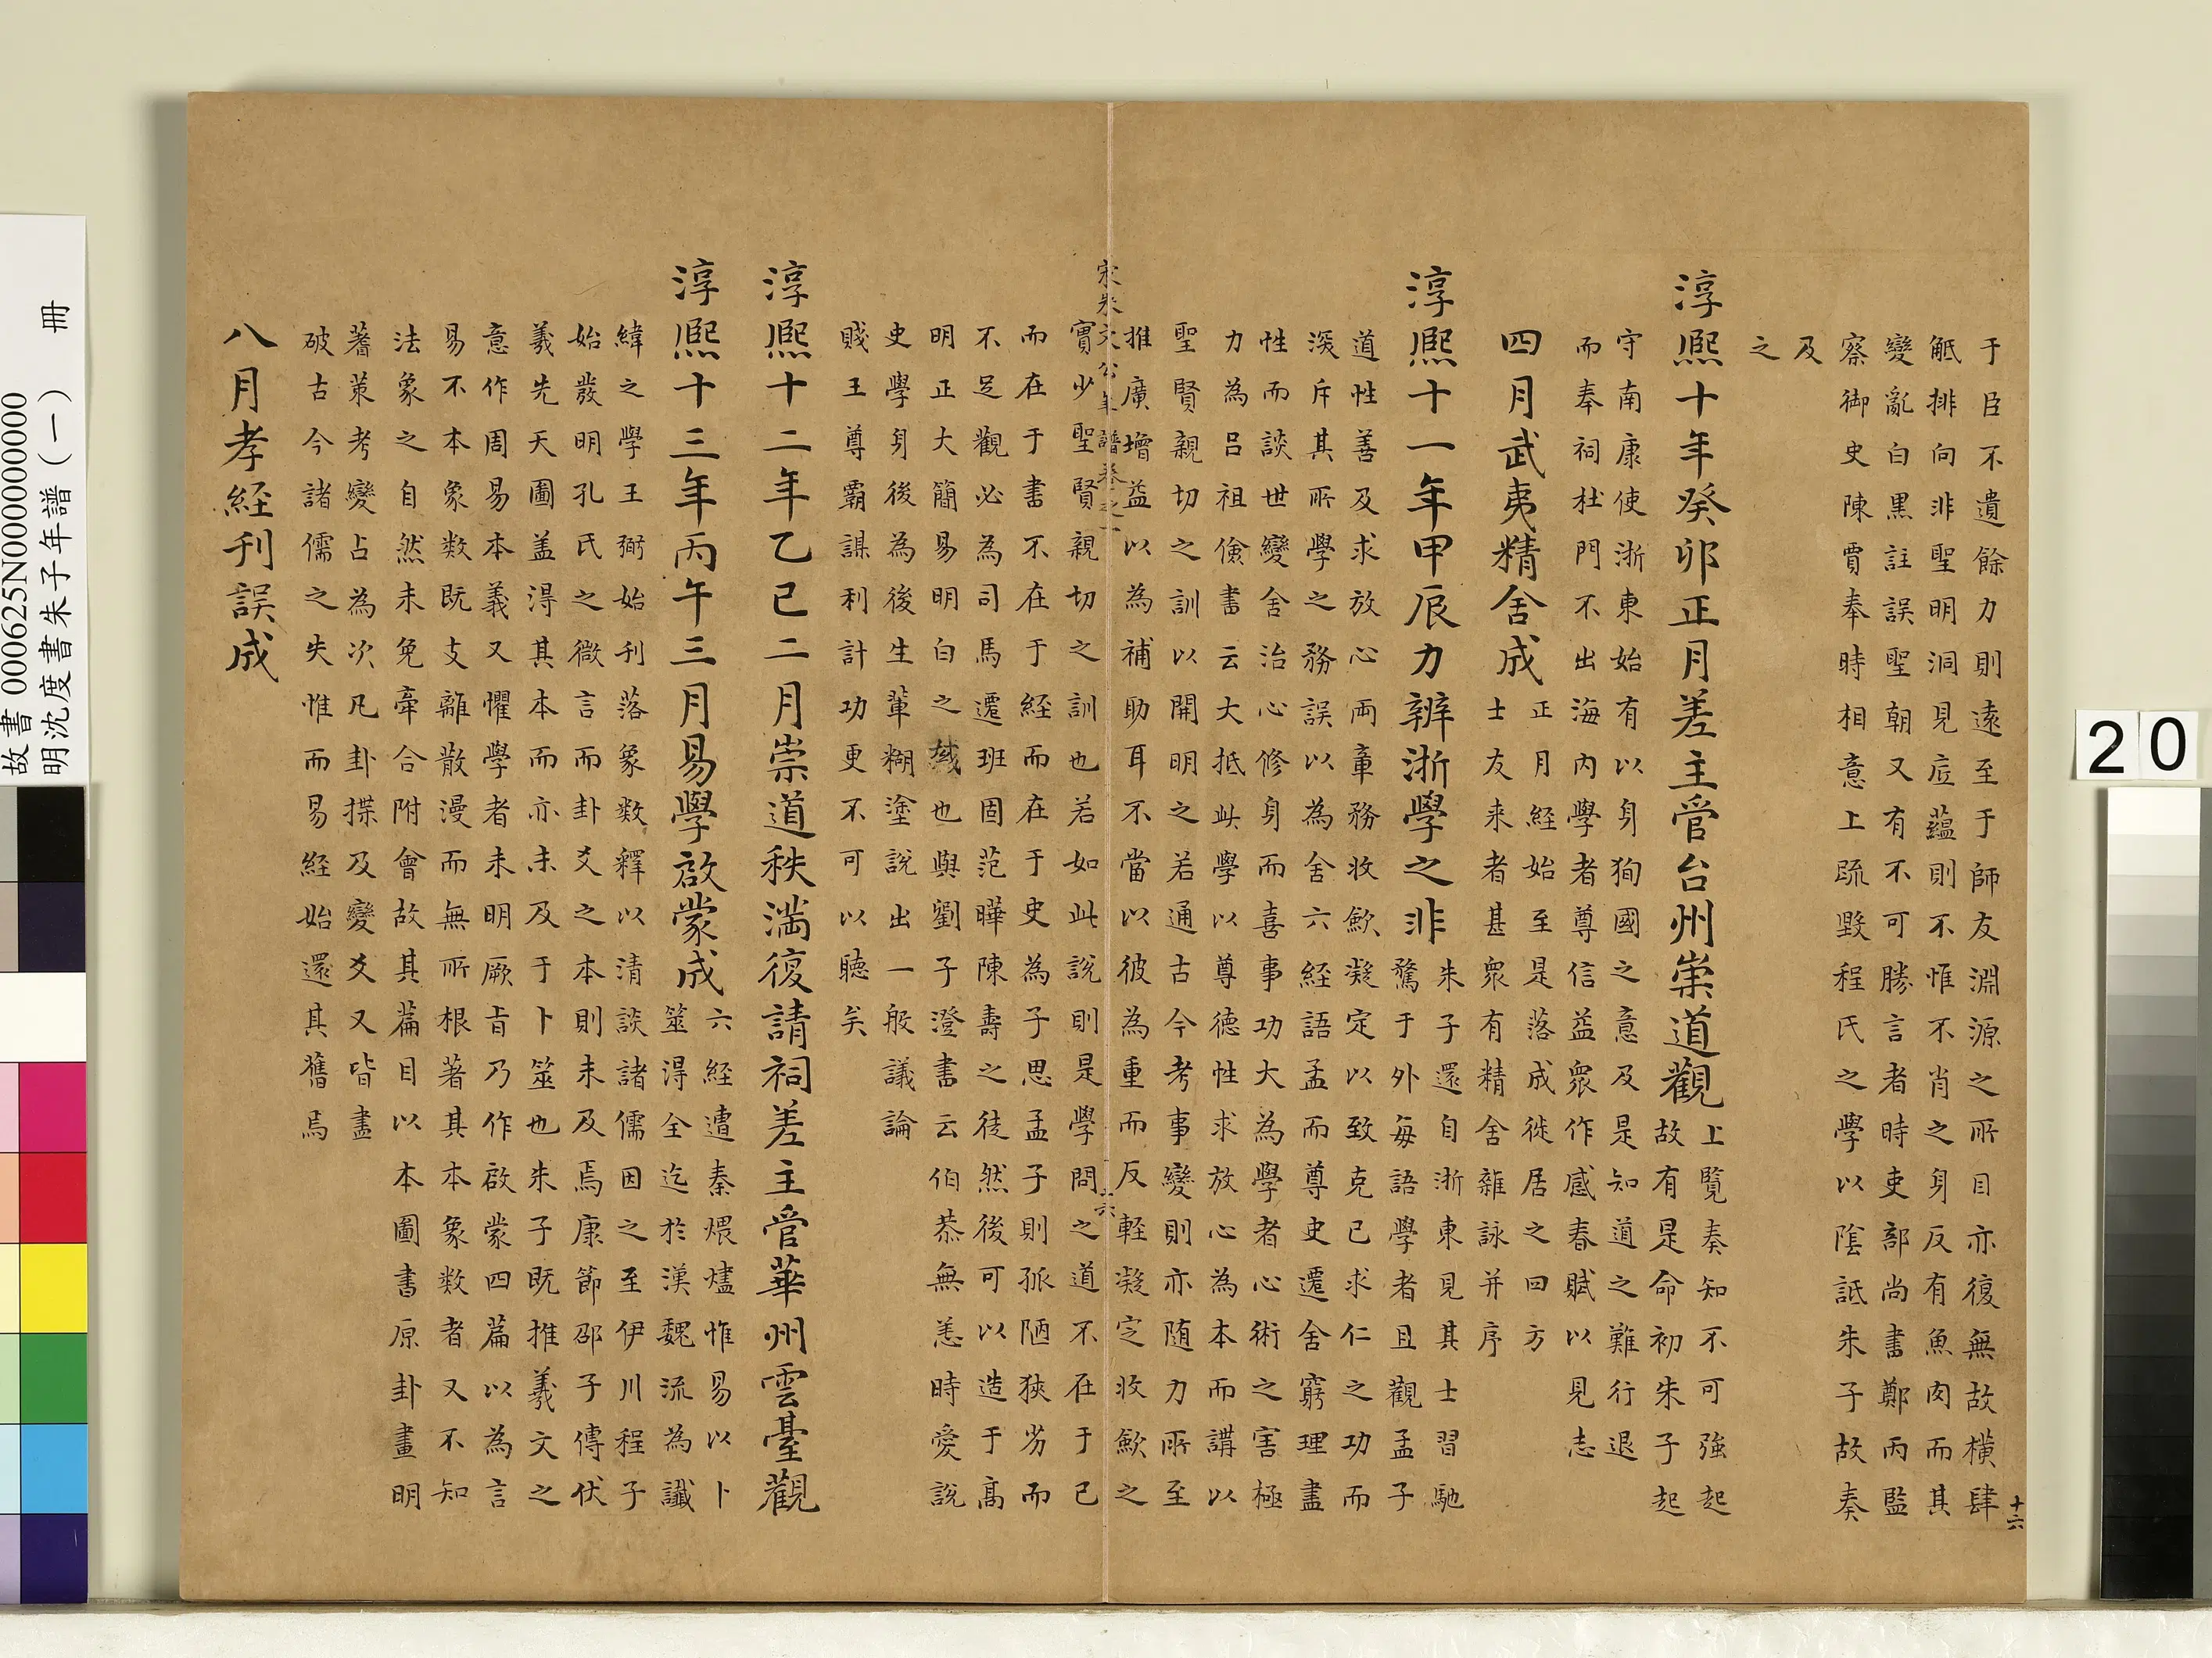 于臣不遺餘力則遠至于師友淵源之所目亦復無故橫肆
觝排向非聖明洞見底蘊則不惟不肖之身反有魚肉而其
變亂白黑註誤聖朝又有不可勝言者時吏部尚書鄭丙監
察御史陳賈奉時相意上疏毀程氏之學以陰詆朱子故奏
及
之
淳熈十年癸卯正月差主管台州崇道觀上覽奏知不可強起
故有是命初朱子起
守南康使浙東始有以身狥國之意及是知道之難行退
而奉祠杜門不出海內學者尊信益衆作感春賦以見志
四月武夷精舍成正月經始至是落成徙居之四方
士友来者甚衆有精舍雜詠并序
淳熈十一年甲辰力辨浙學之非朱子還自浙東見其士習馳
騖于外每語學者且觀孟子
道性善及求放心兩章務收歛凝定以致克己求仁之功而
深斥其所學之誤以為舍六經語孟而尊史遷舍窮理盡
性而談世變舍治心修身而喜事功大為學者心術之害極
力為呂祖儉書云大抵此學以尊德性求放心為本而講以
聖賢親切之訓以開明之若通古今考事變則亦随力所至
推廣增益以為補助耳不當以彼為重而反輕凝定收歛之
宋朱文公年譜卷之一
十六
實少聖賢親切之訓也若如此說則是學問之道不在于己
而在于書不在于經而在于史為子思孟子則孤陋狹劣而
不足觀必為司馬遷班固范曄陳壽之徒然後可以造于高
明正大簡易明白之域也與劉子澄書云伯恭無恙時愛說
史學身後為後生輩糊塗說出一般議論
賤王尊霸謀利計功更不可以聽矣
淳熈十二年乙巳二月崇道秩滿復請祠差主管華州雲臺觀
淳熈十三年丙午三月易學啟蒙成六經遭秦煨燼惟易以卜
筮得全迄於漢魏流為讖
緯之學王弼始刊落象數釋以清談諸儒因之至伊川程子
始發明孔氏之微言而卦爻之本則未及焉康節邵子傳伏
羲先天圖盖得其本而亦未及于卜筮也朱子既推羲文之
意作周易本義又懼學者未明厥旨乃作啟蒙四篇以為言
易不本象數既支離散漫而無所根著其本象數者又不知
法象之自然未免牽合附會故其篇目以本圖書原卦畫明
蓍䇿考變占為次凡卦揲及變爻又皆盡
破古今諸儒之失惟而易経始還其舊焉
八月孝経刊誤成
十六
故書 000625N000000000
明沈度書朱子年譜（一） 冊
20